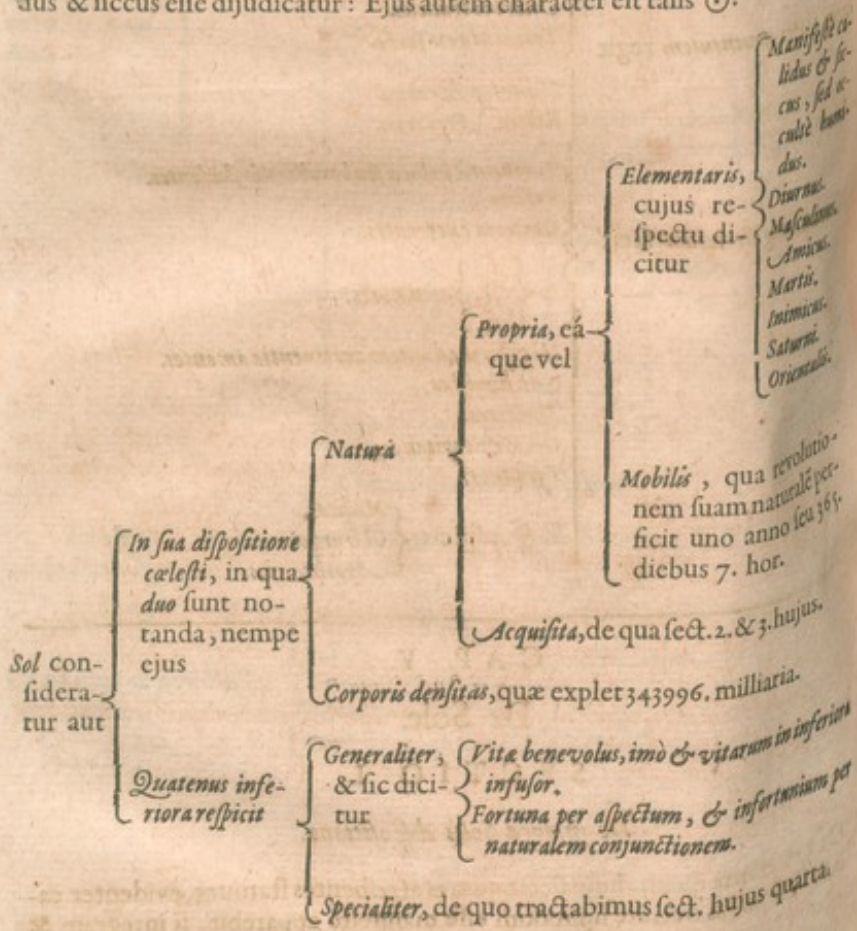 dus & siccus esse dijudicatur: Ejus autem character est talis ☉.
Sol con-
sidera-
tur aut
In sua dispositione
cœlesti, in qua
duo sunt no-
tanda, nempe
ejus
Naturà
Propria, eá
que vel
Elementaris,
cujus re-
spectu di-
citur
Manifestè ca-
lidus & sic-
cus, sed oc-
cultè humi-
dus.
Diurnus.
Masculinus.
Amicus.
Martis.
Inimicus.
Saturni.
Orientalis.
Mobilis, qua revolutio-
nem suam naturalẽ per-
ficit uno anno seu 365.
diebus 7. hor.
Acquisita, de qua sect. 2. & 3. hujus.
Corporis densitas, quæ explet 343996. milliaria.
Quatenus infe-
riora respicit
Generaliter,
& sic dici-
tur
Vitæ benevolus, imò & vitarum in inferiora
infusor.
Fortuna per aspectum, & infortunium per
naturalem conjunctionem.
Specialiter, de quo tractabimus sect. hujus quarta.